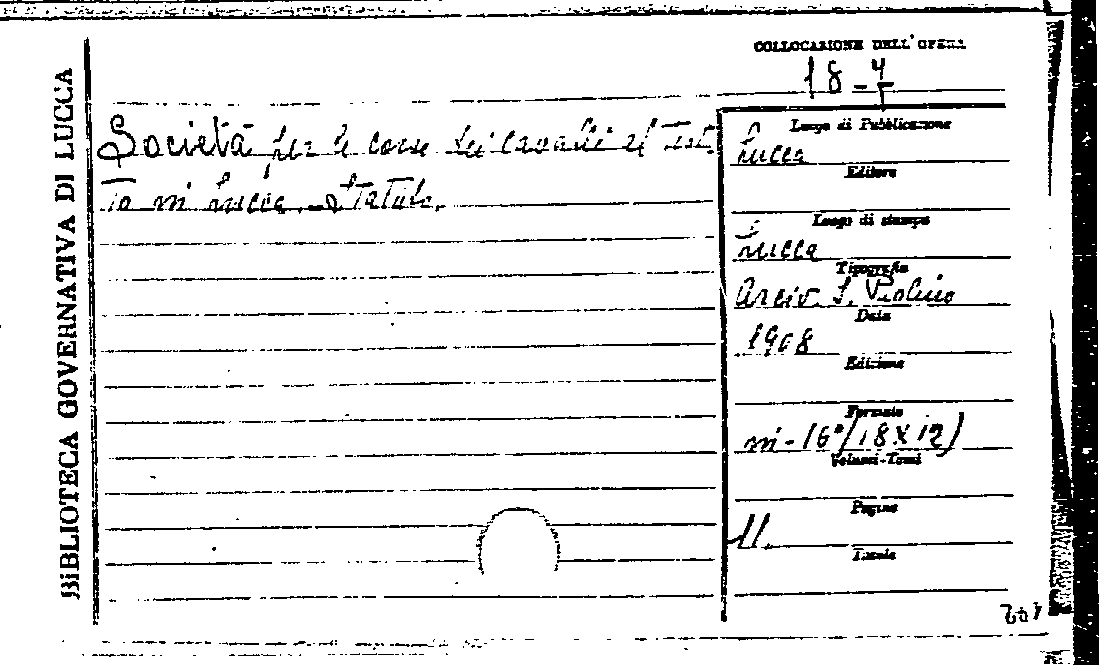 BIBLIOTECA GOVERNATIVA DI LUCCA
COLLOCAZIONE DELL'OPERA
18-4
Società per le corse dei cavalli al Trot-
to in Lucca. Statuto.
Luogo di Pubblicazione
Lucca
Editore
Luogo di stampa
Lucca
Tipografia
Arciv. S. Paolino
Data
1908
Edizione
Formato
in-16°(18X12)
Volumi-Tomi
Pagine
11.
Tavole